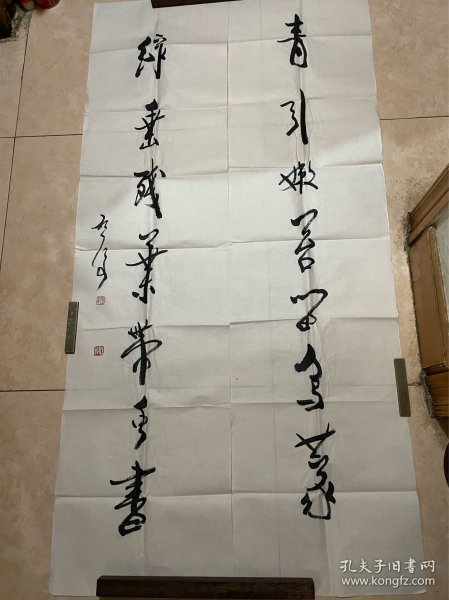 青引嫩苔留鸟篆
绿垂残葉帶虫書
孔夫子旧书网
www.kongfz.com